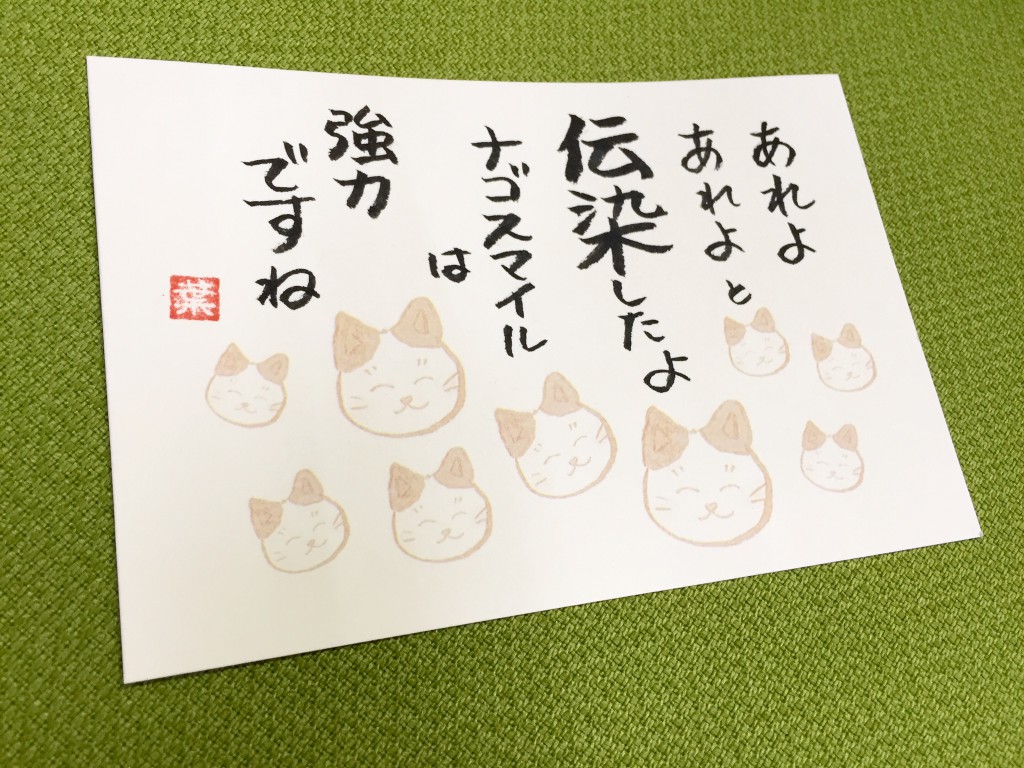 あれよ
あれよと
伝染したよ
ナゴスマイル
は
強力
ですね
葉